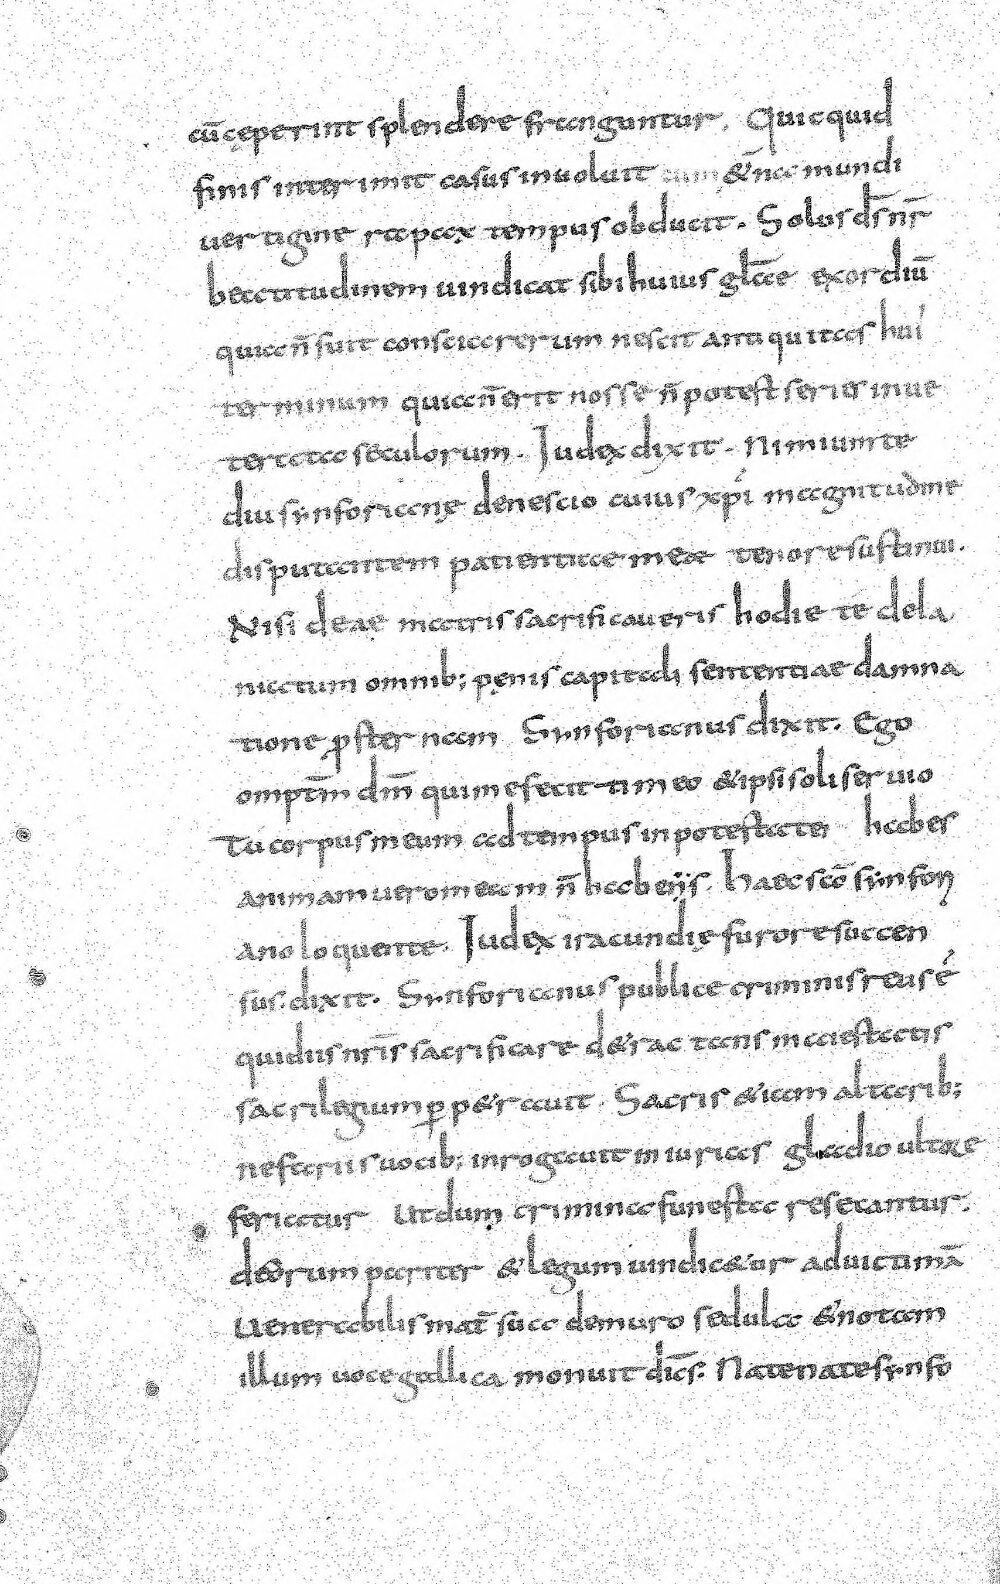 cū cęperint splendere franguntur. Quicquid
finis interimit casus inuoluit cum & in ea mundi
uertigine rapax tempus obducit. Solus d̄s nr̄
beatitudinem uindicat sibi huius gl̄ae exordiū
quia n̄ fuit conscia rerum nescit antiquitas hui
terminum quia n̄ erit nosse n̄ potest series inue
terata seculorum. Iudex dixit. Nimium te
diu sinforiane de nescio cuius xpi magnitudine
disputantem patientiae meae tenore sustinui.
Nisi deae matris sacrificaueris hodie te dela
niatum omnib; penis capitali sententiae damna
tione p̄sternam Sinforianus dixit. Ego
omptm̄ dm̄ qui me fecit timeo & ipsi soli seruio
Tu corpus meum ad tempus in potestate habes
animam uero meam n̄ habeiis. Haec scō sinfori
ano loquente. Iudex iracundię furore succen
sus. dixit. Sinforianus publice criminis reus ē
qui diis nr̄is sacrificare detractans maiestatis
sacrilegium ꝑpetrauit. Sacris etiam altarib;
nefariis uocib; inrogauit iniurias gladio ultore
feriatur Ut dum crimina funesta resecantur.
deorum pariter & legum uindicetur ad uictimā
Uenerabilis mat̄ sua de muro sedula & notam
illum uoce gallica monuit dic̄s. Nate nate sinfo